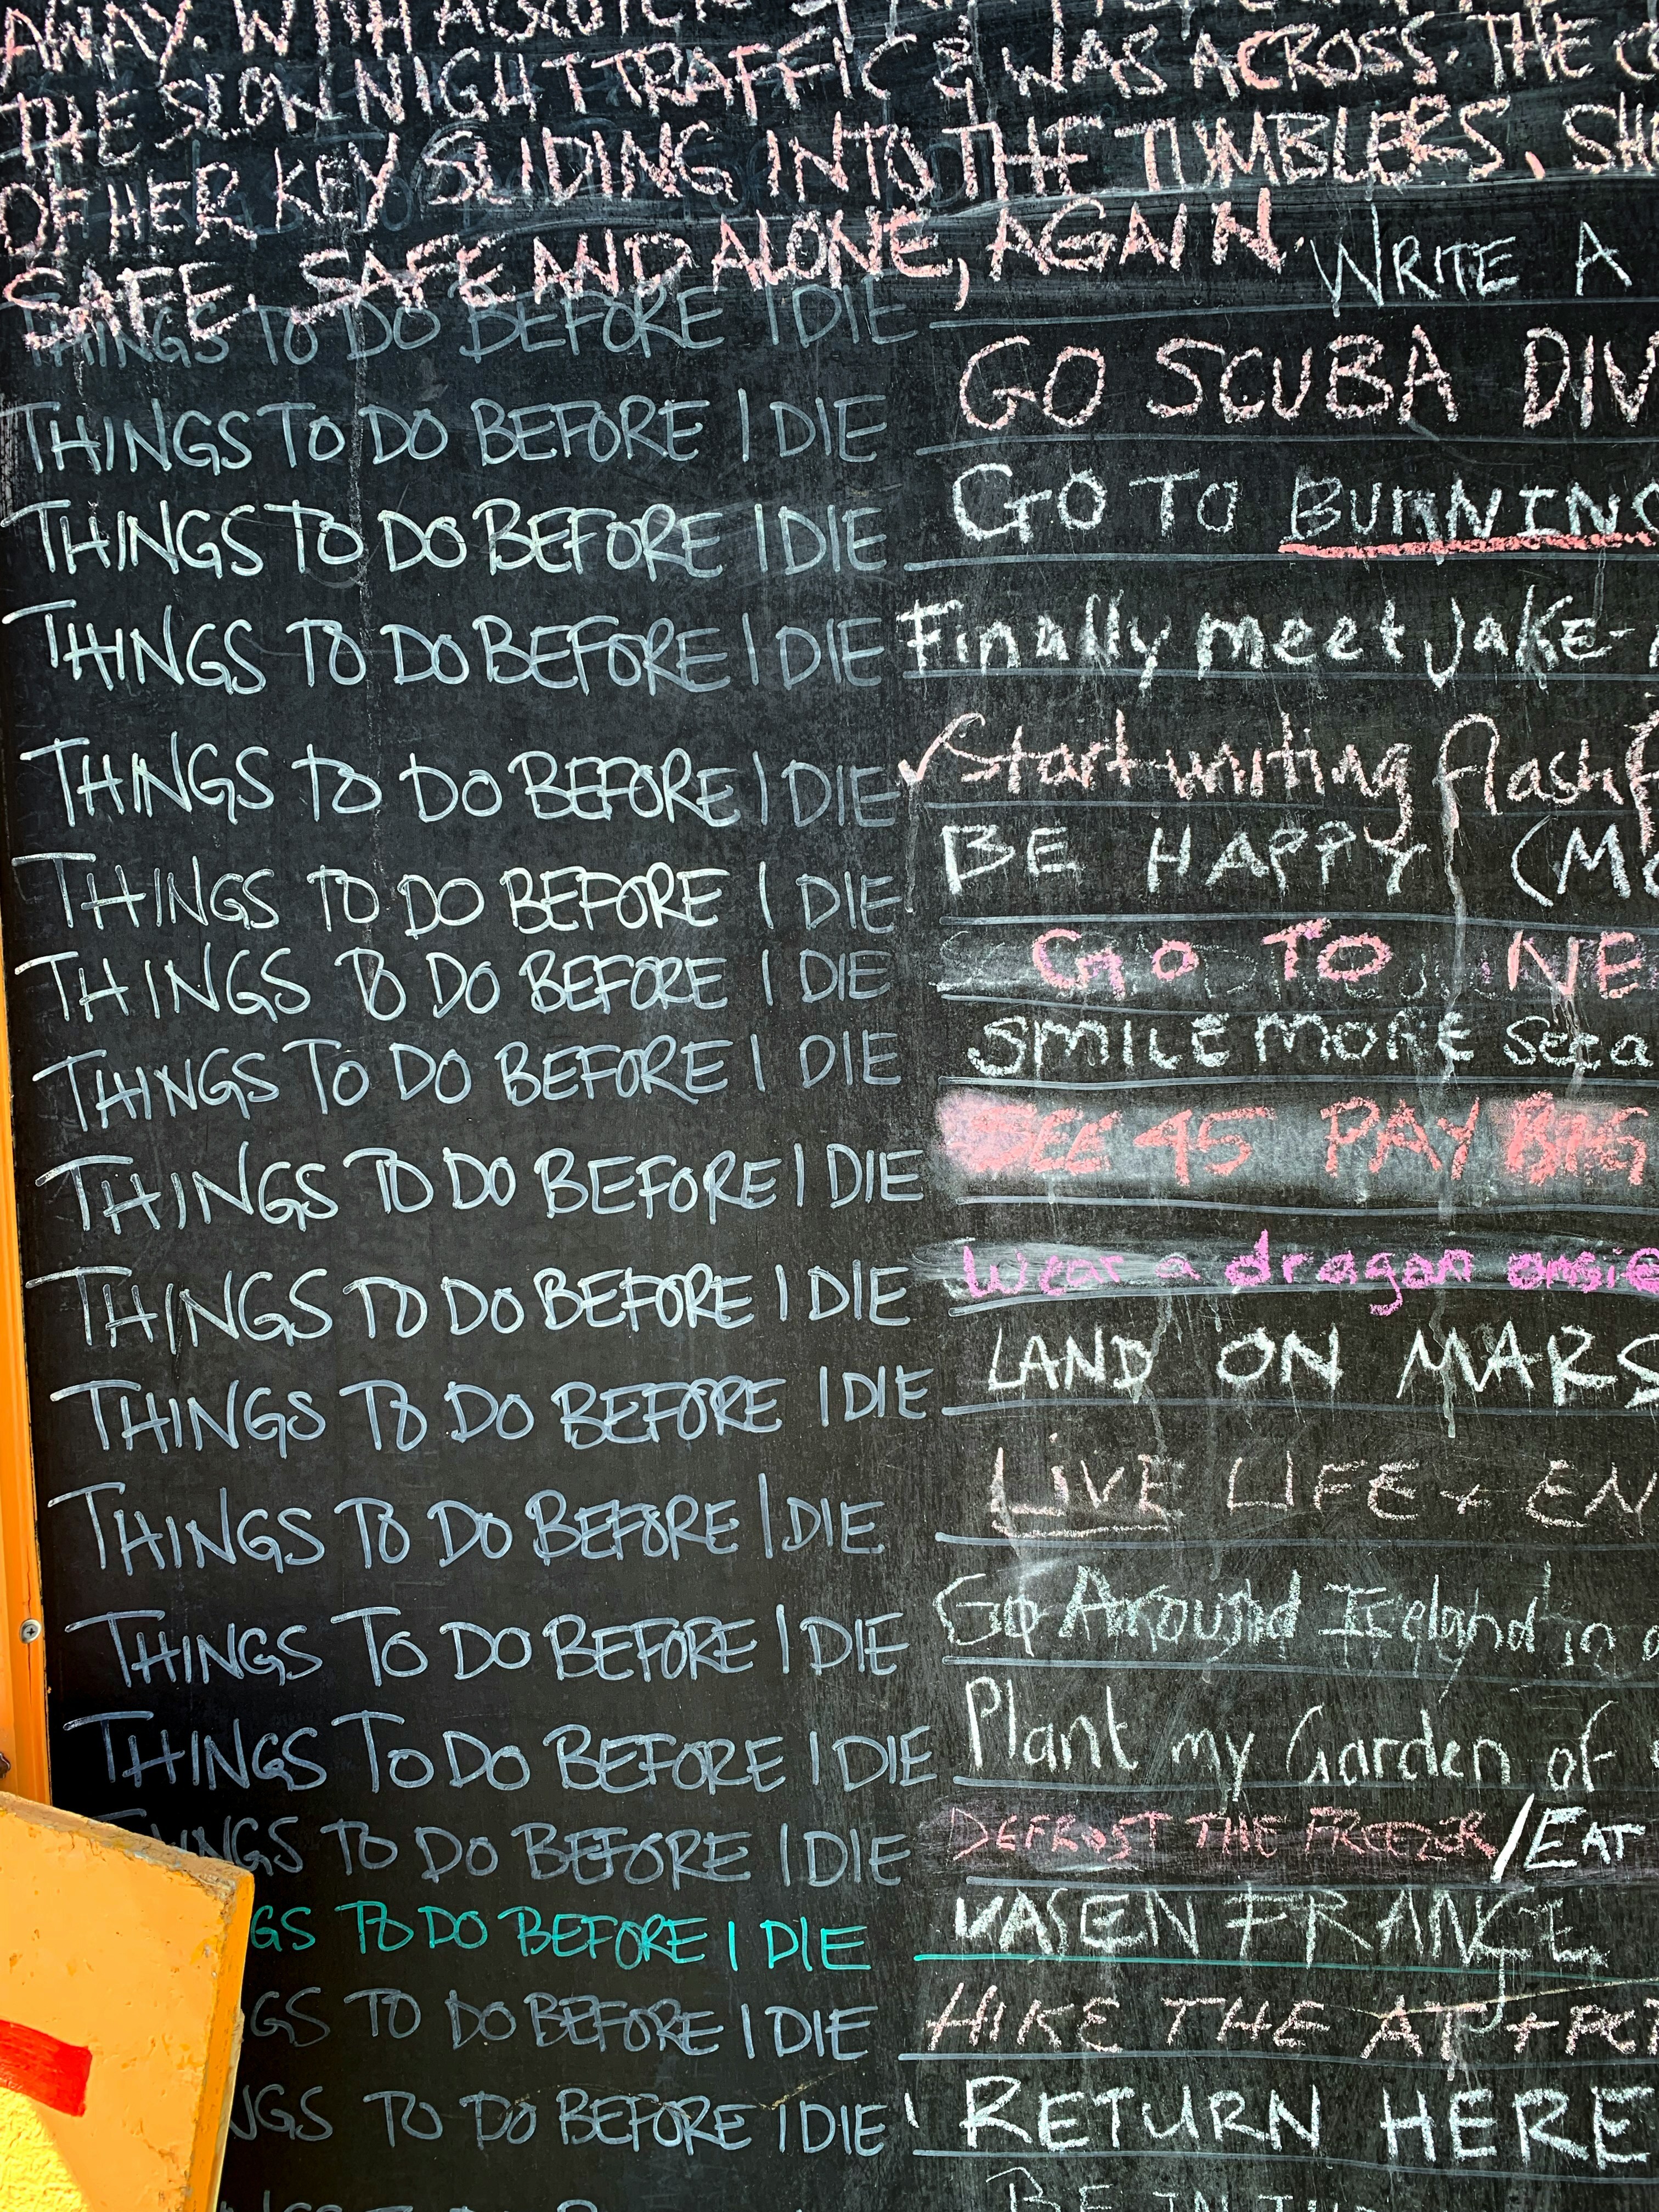 AWAY. WITH
THE SLOW NIGHT TRAFFIC & WAS ACROSS. THE
OF HER KEY SLIDING INTO THE TUMBLERS. SH
SAFE. SAFE AND ALONE, AGAIN.
THINGS TO DO BEFORE I DIE WRITE A
THINGS TO DO BEFORE I DIE GO SCUBA DIV
THINGS TO DO BEFORE I DIE GO TO BURNING
THINGS TO DO BEFORE I DIE Finally meet Jake-
THINGS TO DO BEFORE I DIE Start writing flash f
THINGS TO DO BEFORE I DIE BE HAPPY (MO
THINGS TO DO BEFORE I DIE GO TO NE
THINGS TO DO BEFORE I DIE SMILE MORE
THINGS TO DO BEFORE I DIE SEE 45 PAY BIG
THINGS TO DO BEFORE I DIE Wear a dragon onsie
THINGS TO DO BEFORE I DIE LAND ON MARS
THINGS TO DO BEFORE I DIE LIVE LIFE + EN
THINGS TO DO BEFORE I DIE Go Around Ireland in a
THINGS TO DO BEFORE I DIE Plant my Garden of
THINGS TO DO BEFORE I DIE DEFROST THE FREEZER / EAT
GS TO DO BEFORE I DIE FRANCE
GS TO DO BEFORE I DIE HIKE THE AT + PCT
NGS TO DO BEFORE I DIE RETURN HERE
BE IN